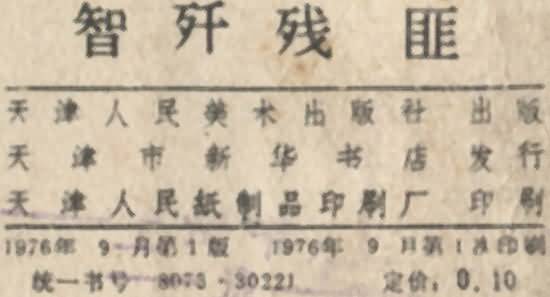 智歼残匪
天津人民美术出版社 出版
天津市新华书店发行
天津人民纸制品印刷厂 印刷
1976年9月第1版 1976年9月第1次印刷
统一书号 8073·30221 定价:0.10